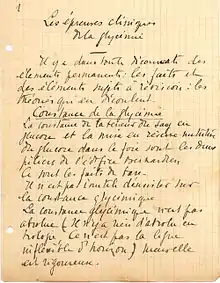 1
Les épreuves cliniques
de la glycémie
Il y a dans toute doctrine des
éléments permanents : les faits et
des éléments sujets à révision : les
théories qui en découlent.
Constance de la glycémie
La constance de la teneur du sang en
glucose et la mise en réserve
du glucose dans le foie sont les deux
piliers de l'édifice bernardien
Ce sont les faits de base
Il n'est pas inutile d'insister sur
la constance glycémique
La constance glycémique n'est pas
absolue (Il n'y a rien d'absolu en
biologie Ce n'est pas la ligne
d'horizon) mais elle
est rigoureuse.